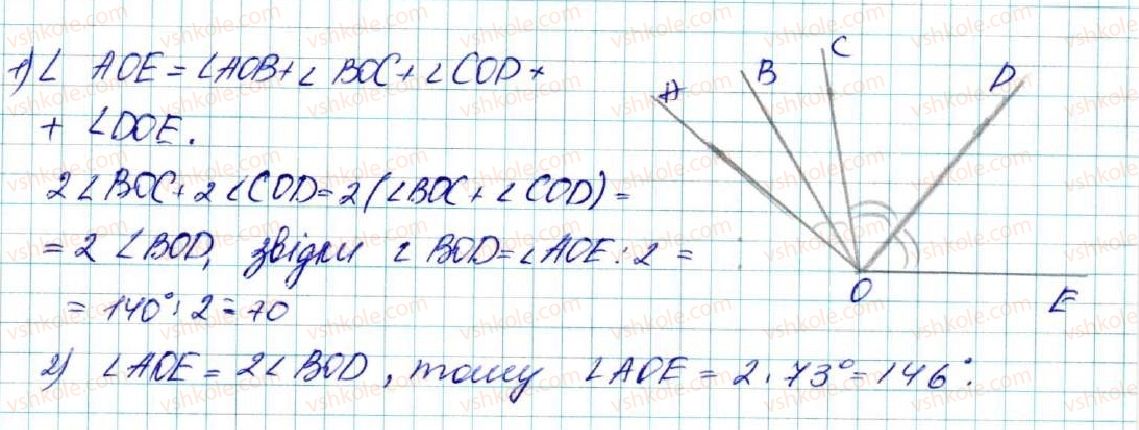 1) ∠ AOE = ∠AOB + ∠ BOC + ∠COD +
+ ∠DOE.
2∠BOC + 2∠COD = 2(∠BOC + ∠COD) =
= 2 ∠BOD, звідки ∠ BOD = ∠AOE : 2 =
= 140° : 2 = 70
2) ∠AOE = 2∠ BOD, тому ∠AOE = 2 · 73° = 146°.
A
B
C
D
O
E
vshkole.com